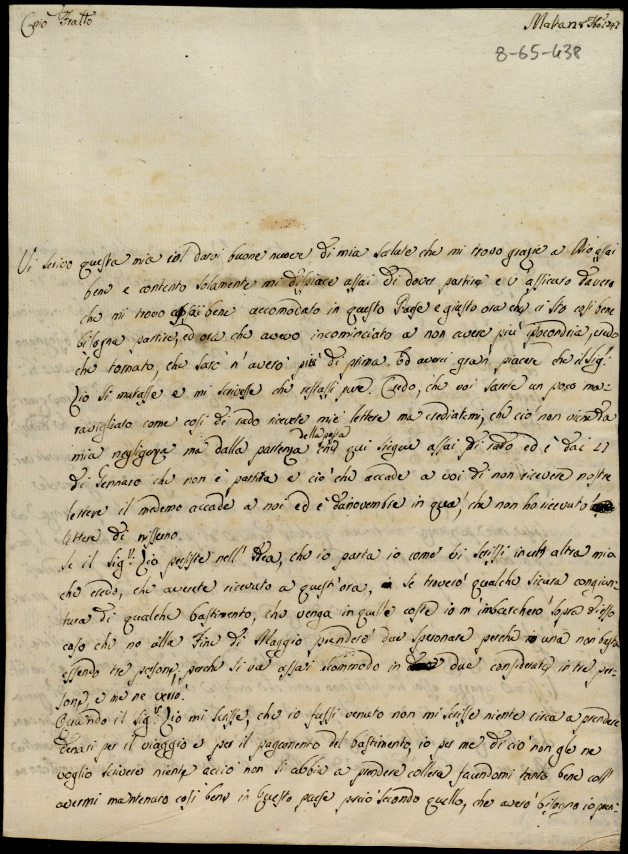 Caro Fratto
8-65-438
Vi scrivo questa mia col darvi buone nuove di mia salute che mi trovo grazie a Dio assai
bene e contento solamente mi dispiace assai di dover partire e v'assicuro davero
che mi trovo assai bene accomodato in questo Paese e giusto ora che ci sto così bene
bisogna partire, ed ora che avevo incominciato a non avere più ipocondria, credo
che tornato, che sarò n'averò più di prima. Ed averei gran piacere che il Sig.r
Zio si mutasse e mi scrivesse che restassi pure. Credo, che voi sarete un poco ma-
ravigliato come così di rado ricevete mie lettere ma crediatemi, che ciò non viene da
mia negligenza ma dalla partenza della posta che qui siegue assai di rado ed è dai 27
di Gennaro che non è partita e ciò che accade a voi di non ricevere nostre
lettere il medemo accade a noi ed è da novembre in qua, che non ho ricevuto
lettere di nissuno.
Se il Sig.r Zio persiste nell'Idea, che io parta io come vi scrissi in altra mia
che credo, che averete ricevuto a quest'ora, se troverò qualche sicura congiun-
tura di qualche bastimento, che venga in quelle coste io m'imbarcherò sopra d'esso
caso che no alla Fine di Maggio prenderò due speronare perchè una non basta
essendo tre persone, perchè si va assai scommodo in due considerate in tre per-
sone e me ne verrò.
Quando il Sig.r Zio mi scrisse, che io fussi venuto non mi scrisse niente circa a prendere
denari per il viaggio e per il pagamento del bastimento, io per me di ciò non gle ne
voglio scrivere niente acciò non si abbia a prendere collera facendomi tanto bene coll'
avermi mantenuto così bene in questo paese perciò secondo quello, che averò bisogno io pren-